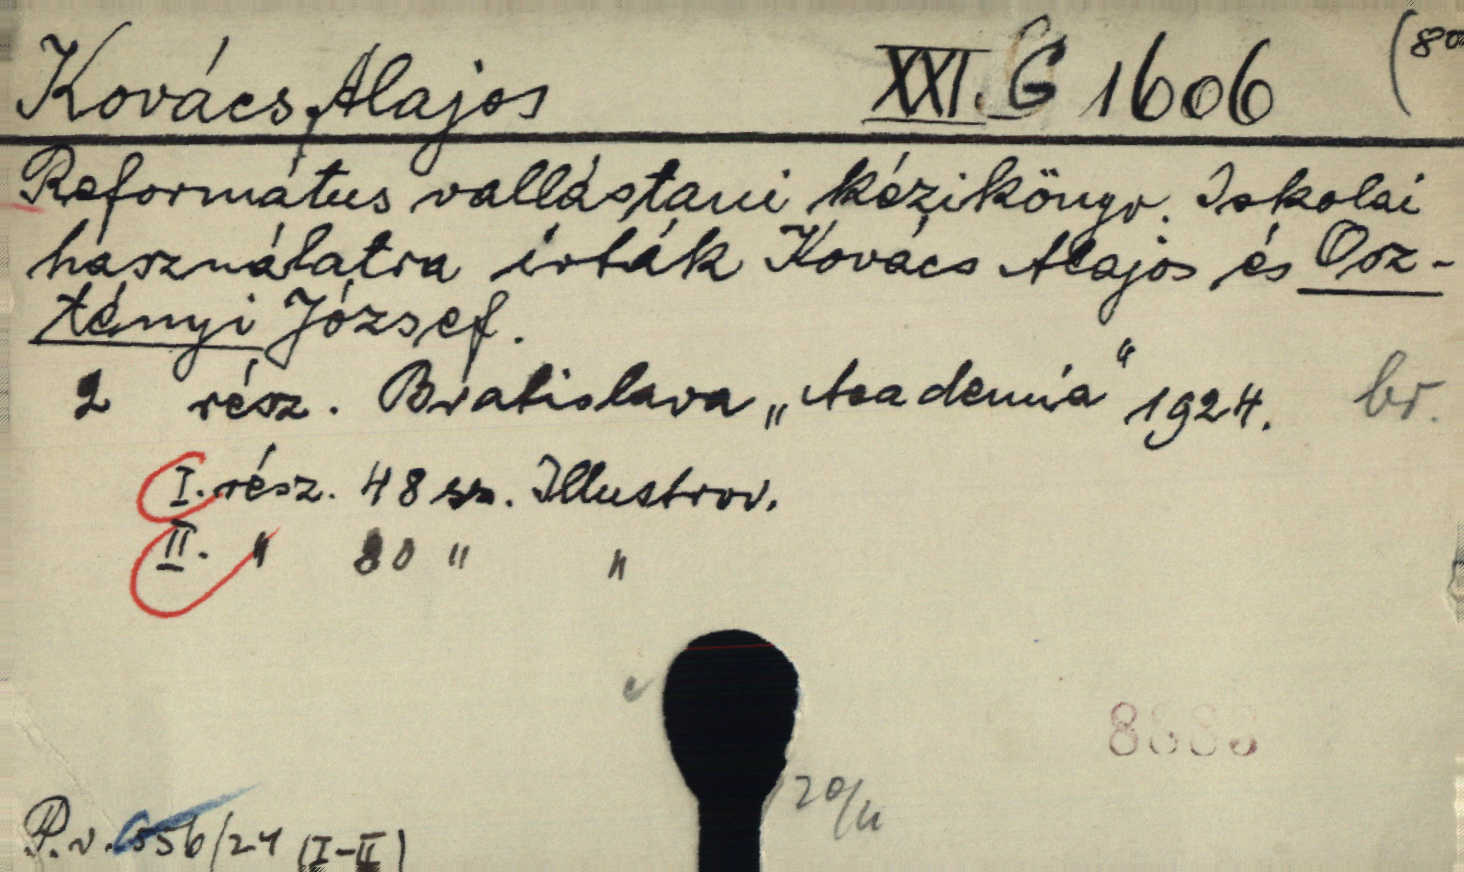 Kovács, Alajos XXI. G 1606 (80
Református vallástani kézikönyv. Iskolai
használatra írták Kovács Alajos és Osz-
tényi József.
2 rész. Bratislava „Academia“ 1924. br.
I. rész. 48 ss. Illustrov.
II. " 80 " "
8883
20/II
P.v. 656/24 (I-II)